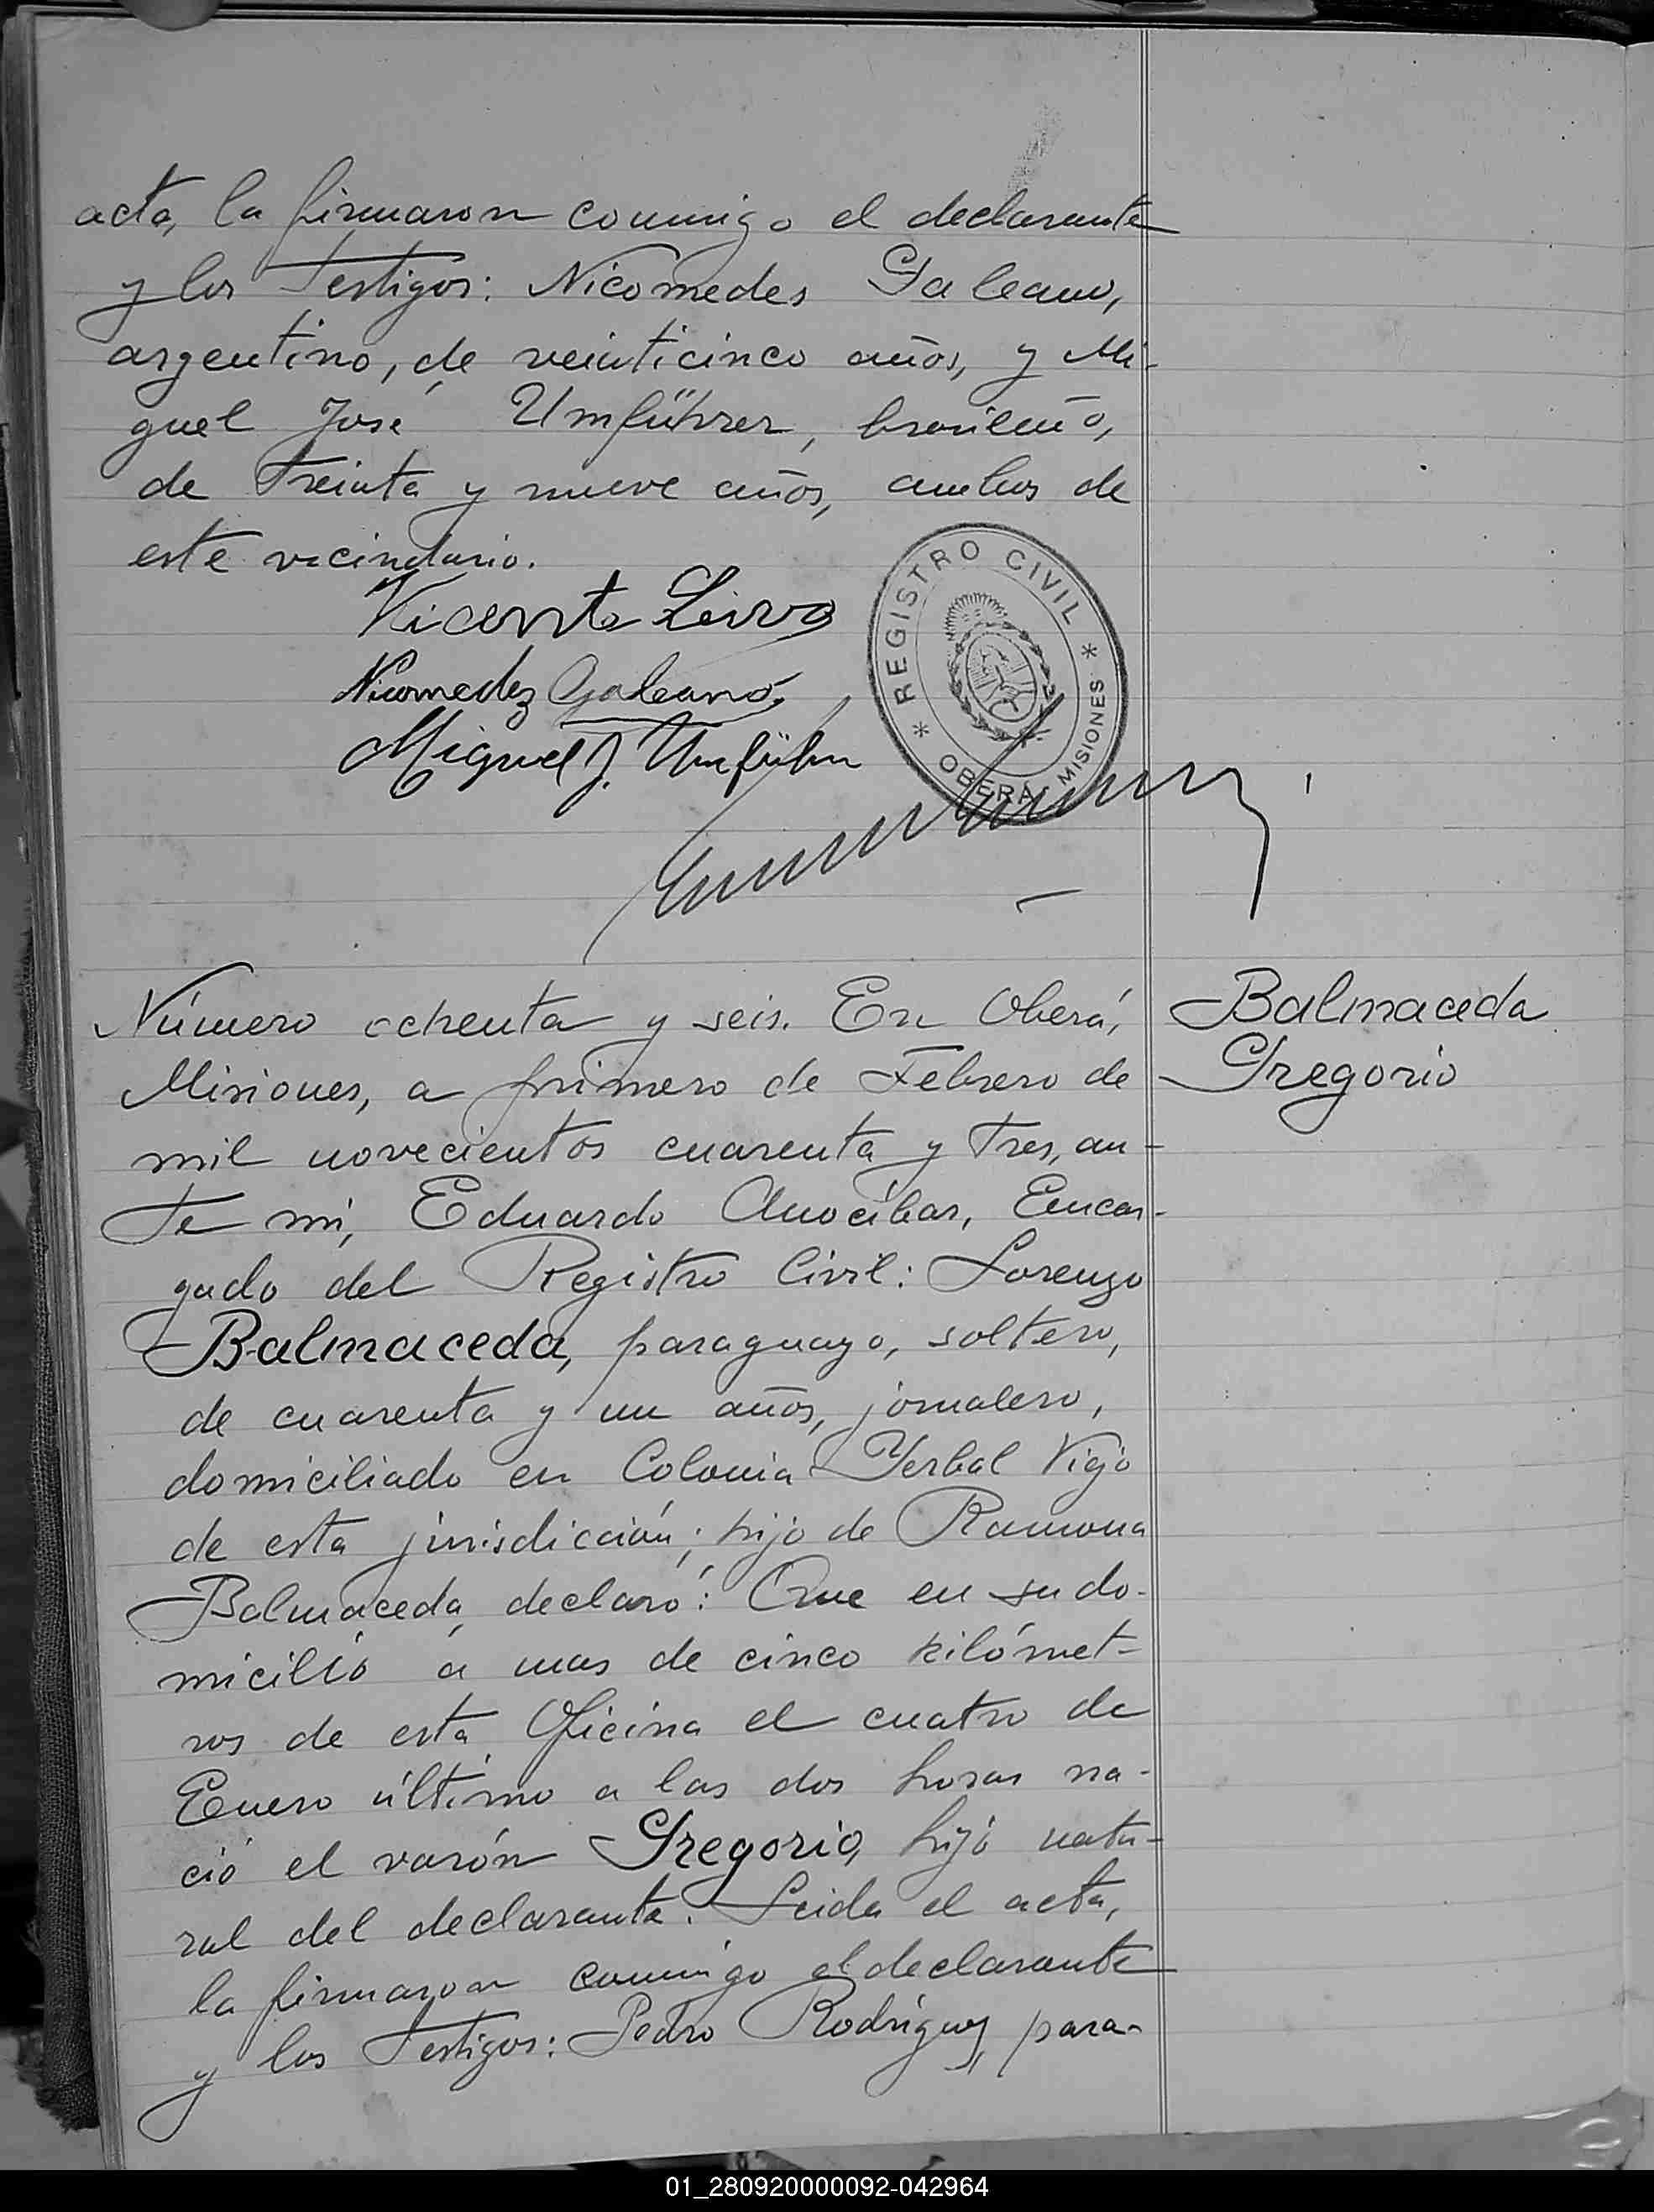 acta, la firmaron conmigo el declarante
y los testigos: Nicomedes Galeano,
argentino, de veinticinco años, y Mi-
guel José Umführer, brasileño,
de treinta y nueve años, ambos de
este vecindario.
Vicente Leiva
Nicomedez Galeano.
Miguel J. Umführ
* REGISTRO CIVIL *
OBERÁ - MISIONES
Número ochenta y seis. En Oberá,
Balmaceda
Misiones, a primero de Febrero de
Gregorio
mil novecientos cuarenta y tres, an-
te mí, Eduardo Anocíbar, Encar-
gado del Registro Civil: Lorenzo
Balmaceda, paraguayo, soltero,
de cuarenta y un años, jornalero,
domiciliado en Colonia Yerbal Viejo
de esta jurisdicción; hijo de Ramona
Balmaceda, declaró: Que en su do-
micilio a mas de cinco kilómet-
ros de esta Oficina el cuatro de
Enero último a las dos horas na-
ció el varón Gregorio, hijo natu-
ral del declarante. Leida el acta,
la firmaron conmigo el declarante
y los testigos: Pedro Rodríguez, para-
01_280920000092-042964